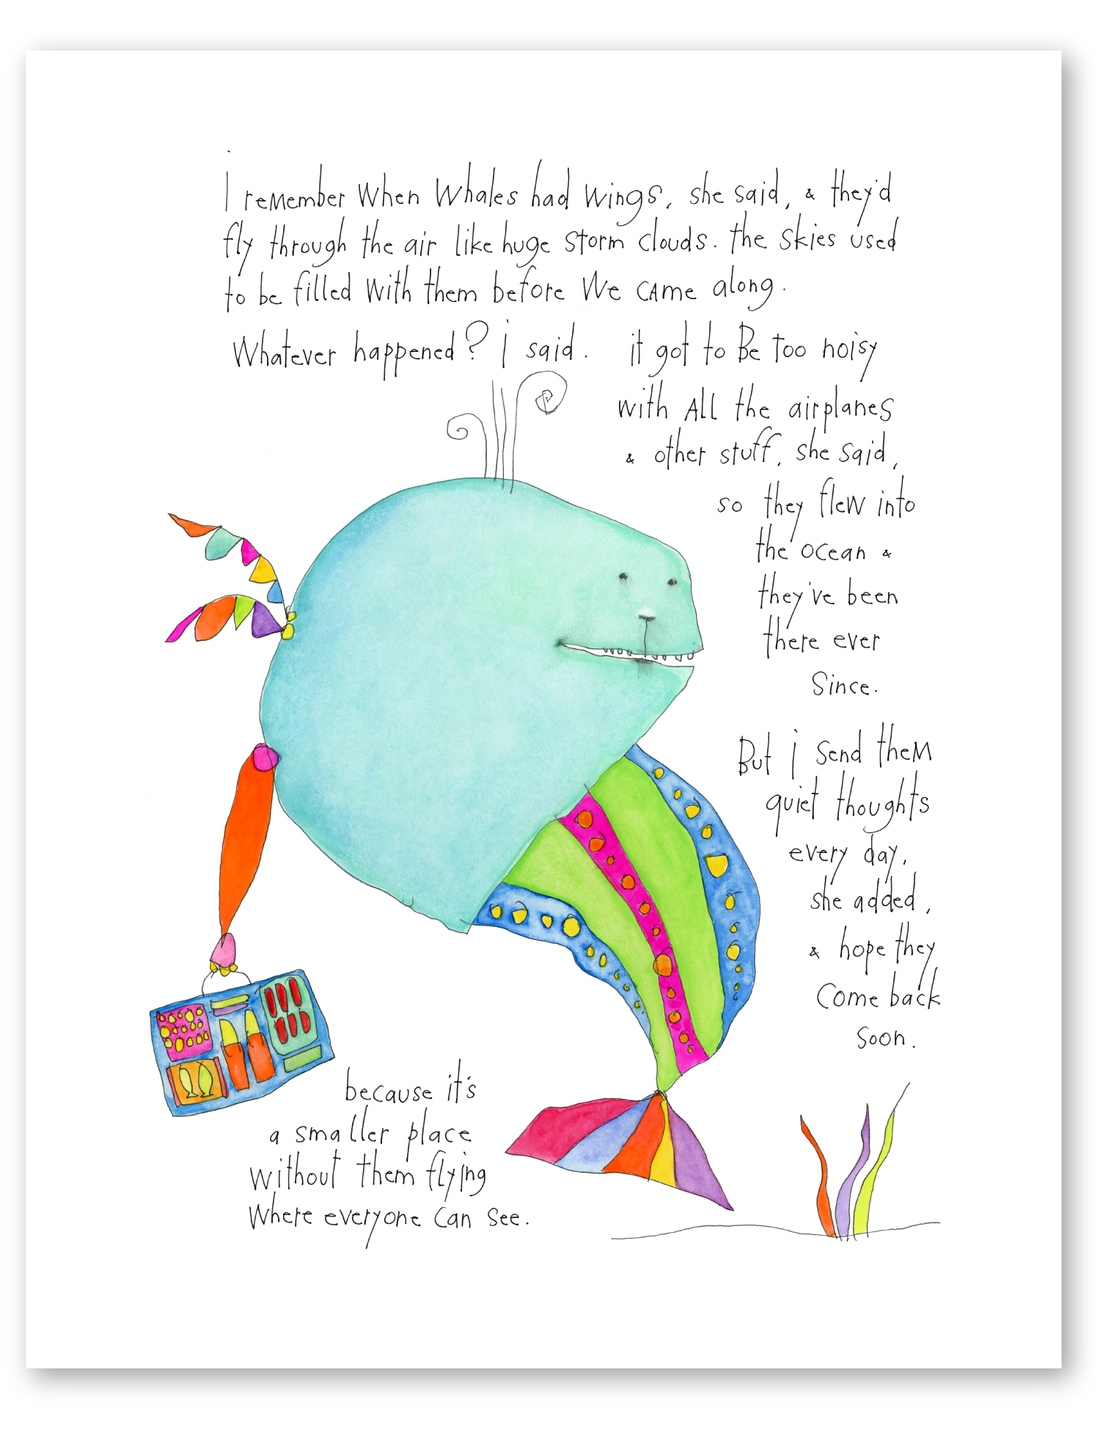 I remember when whales had wings, she said, & they'd
fly through the air like huge storm clouds. the skies used
to be filled with them before we came along.
Whatever happened? i said. it got to Be too noisy
with All the airplanes
& other stuff, she said,
so they flew into
the ocean &
they've been
there ever
Since.
But i send them
quiet thoughts
every day,
she added,
& hope they
Come back
soon.
because it's
a smaller place
without them flying
where everyone can see.